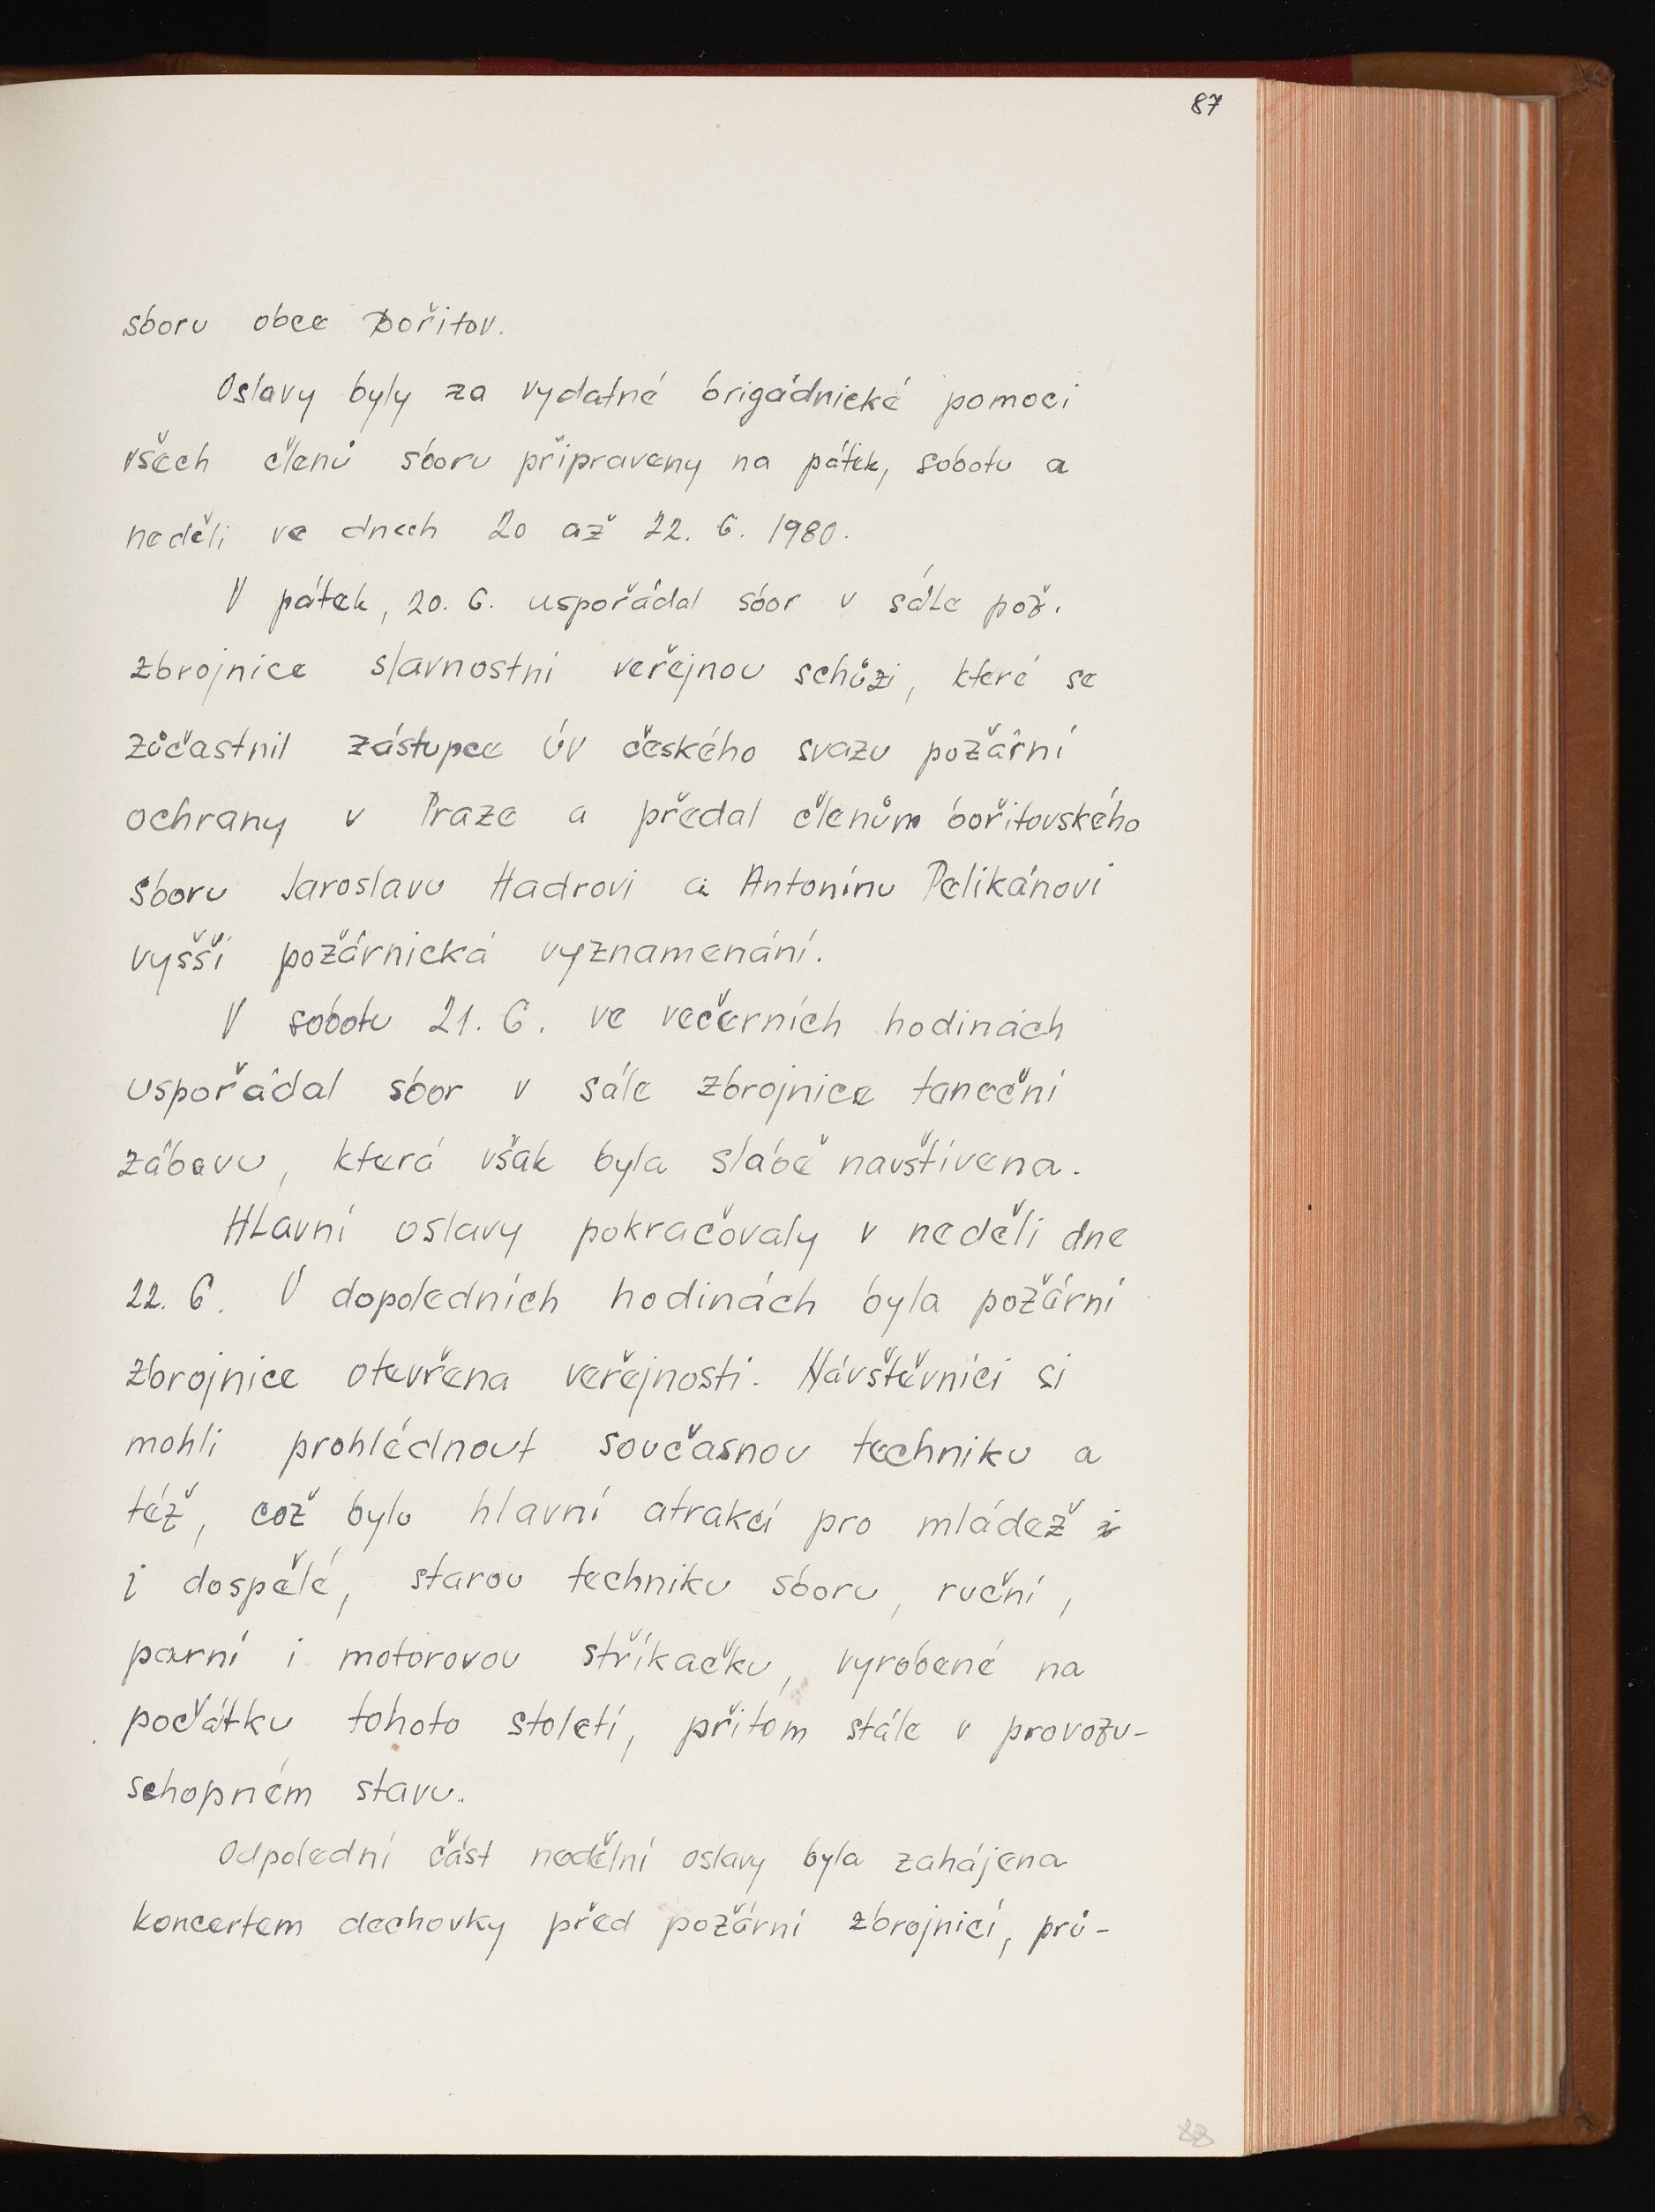 87
sboru obce Bořitov.
Oslavy byly za vydatné brigádnické pomoci
všech členů sboru připraveny na pátek, sobotu a
neděli ve dnech 20 až 22. 6. 1980.
V pátek, 20. 6. uspořádal sbor v sále pož.
zbrojnice slavnostní veřejnou schůzi, které se
zůčastnil zástupce ÚV českého svazu požární
ochrany v Praze a předal členům bořitovského
sboru Jaroslavu Hadrovi a Antonínu Pelikánovi
vyšší požárnická vyznamenání.
V sobotu 21. 6. ve večerních hodinách
uspořádal sbor v sále zbrojnice taneční
zábavu, která však byla slabě navštívena.
Hlavní oslavy pokračovaly v neděli dne
22. 6. V dopoledních hodinách byla požární
zbrojnice otevřena veřejnosti. Návštěvníci si
mohli prohlédnout současnou techniku a
též, což bylo hlavní atrakcí pro mládež
i dospělé, starou techniku sboru, ruční,
parní i motorovou stříkačku, vyrobené na
počátku tohoto století, přitom stále v provozu-
schopném stavu.
Odpolední část nedělní oslavy byla zahájena
koncertem dechovky před požární zbrojnicí, prů-